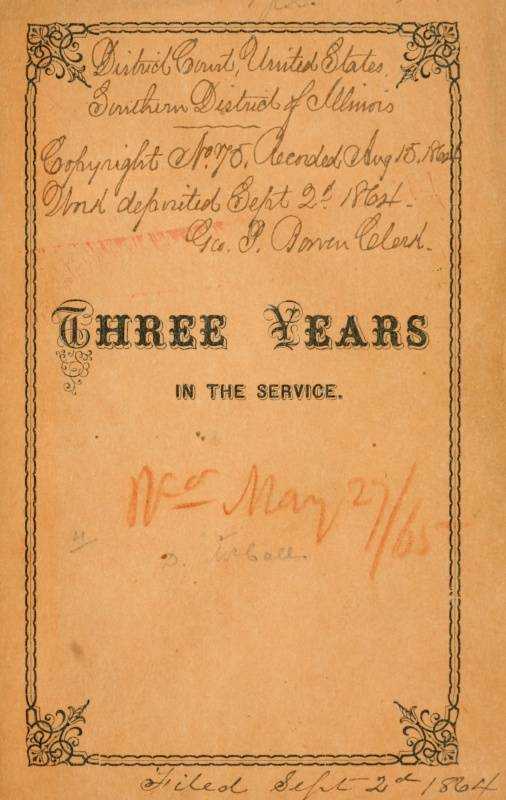 District Court, United States,
Southern District of Illinois
Copyright No. 75. Recorded Aug 15, 1864
Work deposited Sept 2d 1864.
Geo. P. Bowen Clerk.
THREE YEARS
IN THE SERVICE.
May 27/65
Filed Sept 2d 1864